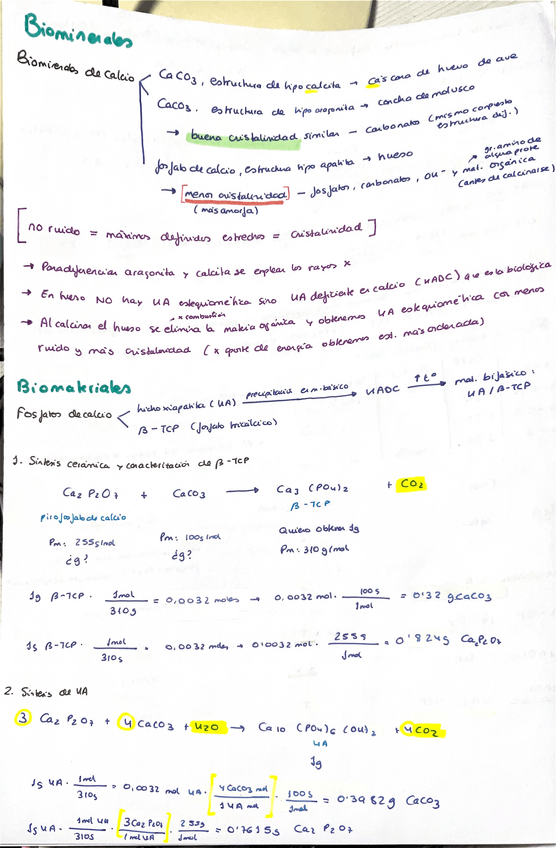 Biominerales
Biominerales de calcio
CaCO3, estructura de tipo calcita → Cáscara de huevo de ave
CaCO3. estructura de tipo aragonita → concha de molusco
→ buena cristalinidad similar - carbonatos (mismo compuesto estructura dif.)
fosfato de calcio, estructura tipo apatita → hueso
→ [menor cristalinidad] - fosfatos, carbonatos, OH- y mat. orgánica (antes de calcinarse)
(más amorfa)
gr. amino de alguna prote
[no ruido = máximos definidos estrechos = cristalinidad]
→ Para diferenciar aragonita y calcita se emplean los rayos x
→ En hueso NO hay HA estequiométrica sino HA deficiente en calcio (HADC) que es la biológica
x combustión
→ Al calcinar el hueso se elimina la materia orgánica y obtenemos HA estequiométrica con menos
ruido y más cristalinidad (x aporte de energía obtenemos est. más ordenada)
Biomateriales
Fosfatos de calcio
hidroxiapatita (HA) precipitación en m. básico → HADC ↑tº → mat. bifásico: HA / β-TCP
β-TCP (fosfato tricálcico)
1. Síntesis cerámica y caracterización de β-TCP
Ca2P2O7 + CaCO3 → Ca3(PO4)2 + CO2
β-TCP
pirofosfato de calcio
Quiero obtener 1g
Pm: 255g/mol Pm: 100g/mol Pm: 310g/mol
¿g? ¿g?
1g β-TCP · 1mol/310g = 0,0032 moles → 0,0032 mol · 100g/1mol = 0'32 g CaCO3
1g β-TCP · 1mol/310g = 0,0032 moles → 0'0032 mol · 255g/1mol = 0'824g Ca2P2O7
2. Síntesis de HA
3 Ca2P2O7 + 4 CaCO3 + H2O → Ca10(PO4)6(OH)2 + 4CO2
HA
1g
1g HA · 1mol/310g = 0,0032 mol HA · [4 CaCO3 mol/1 HA mol] · 100g/1mol = 0'3982g CaCO3
1g HA · 1mol HA/310g · [3Ca2P2O7/1mol HA] · 255g/1mol = 0'7615g Ca2P2O7